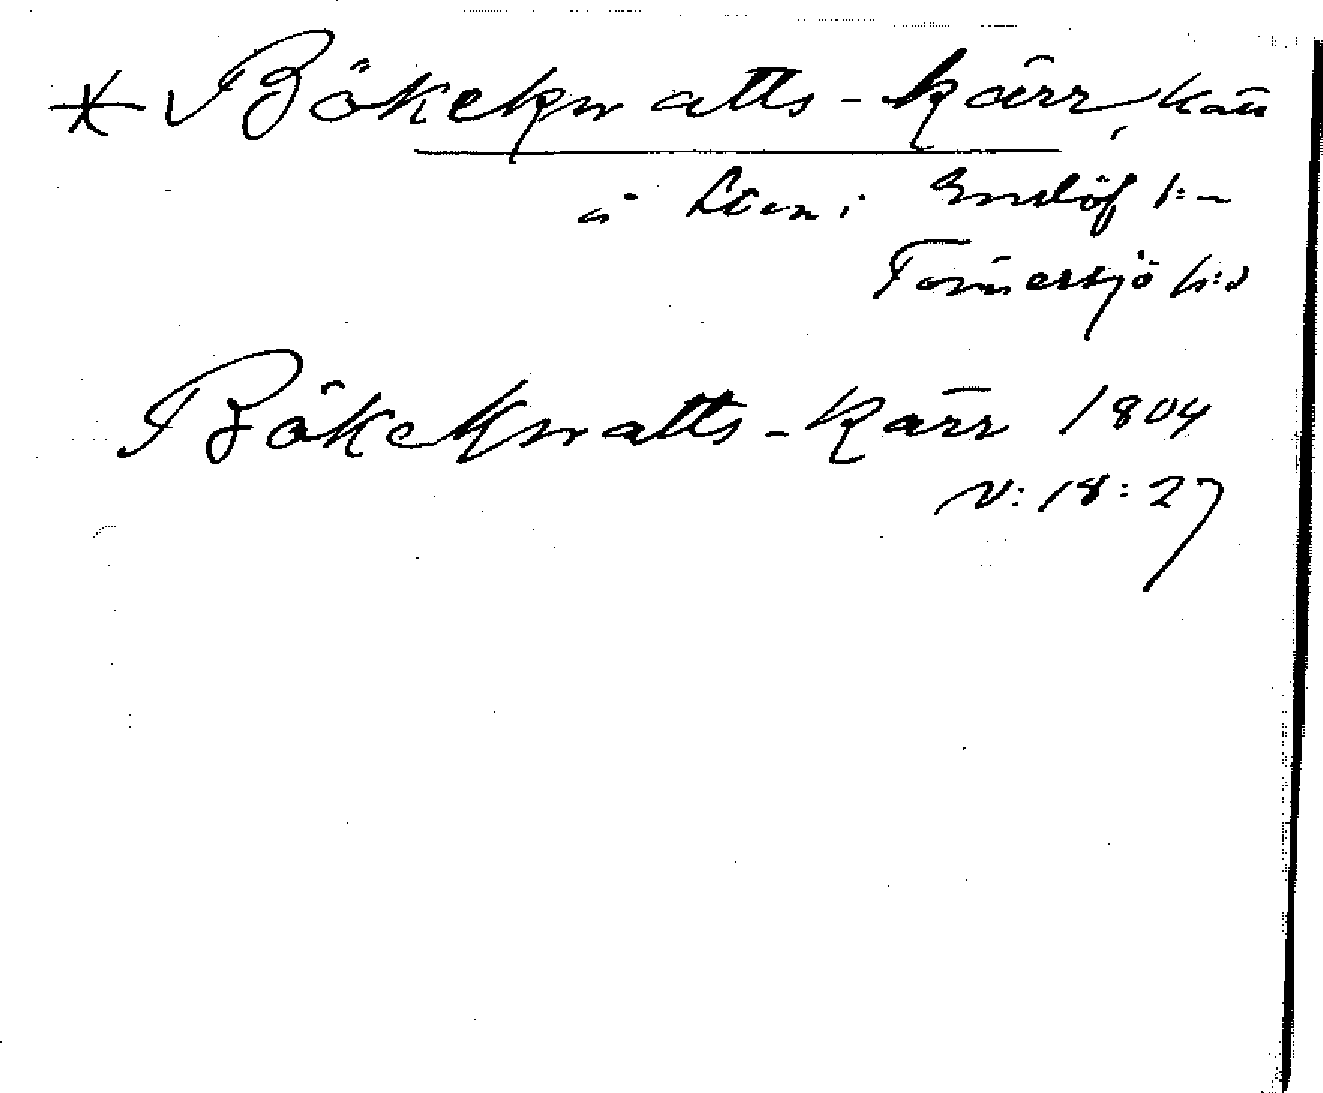 * Bökeknatts-kärr, kärr
å Lien i Emslöf s:n
Tönnersjö h:d
Bökeknatts-kärr 1804
V: 18: 27